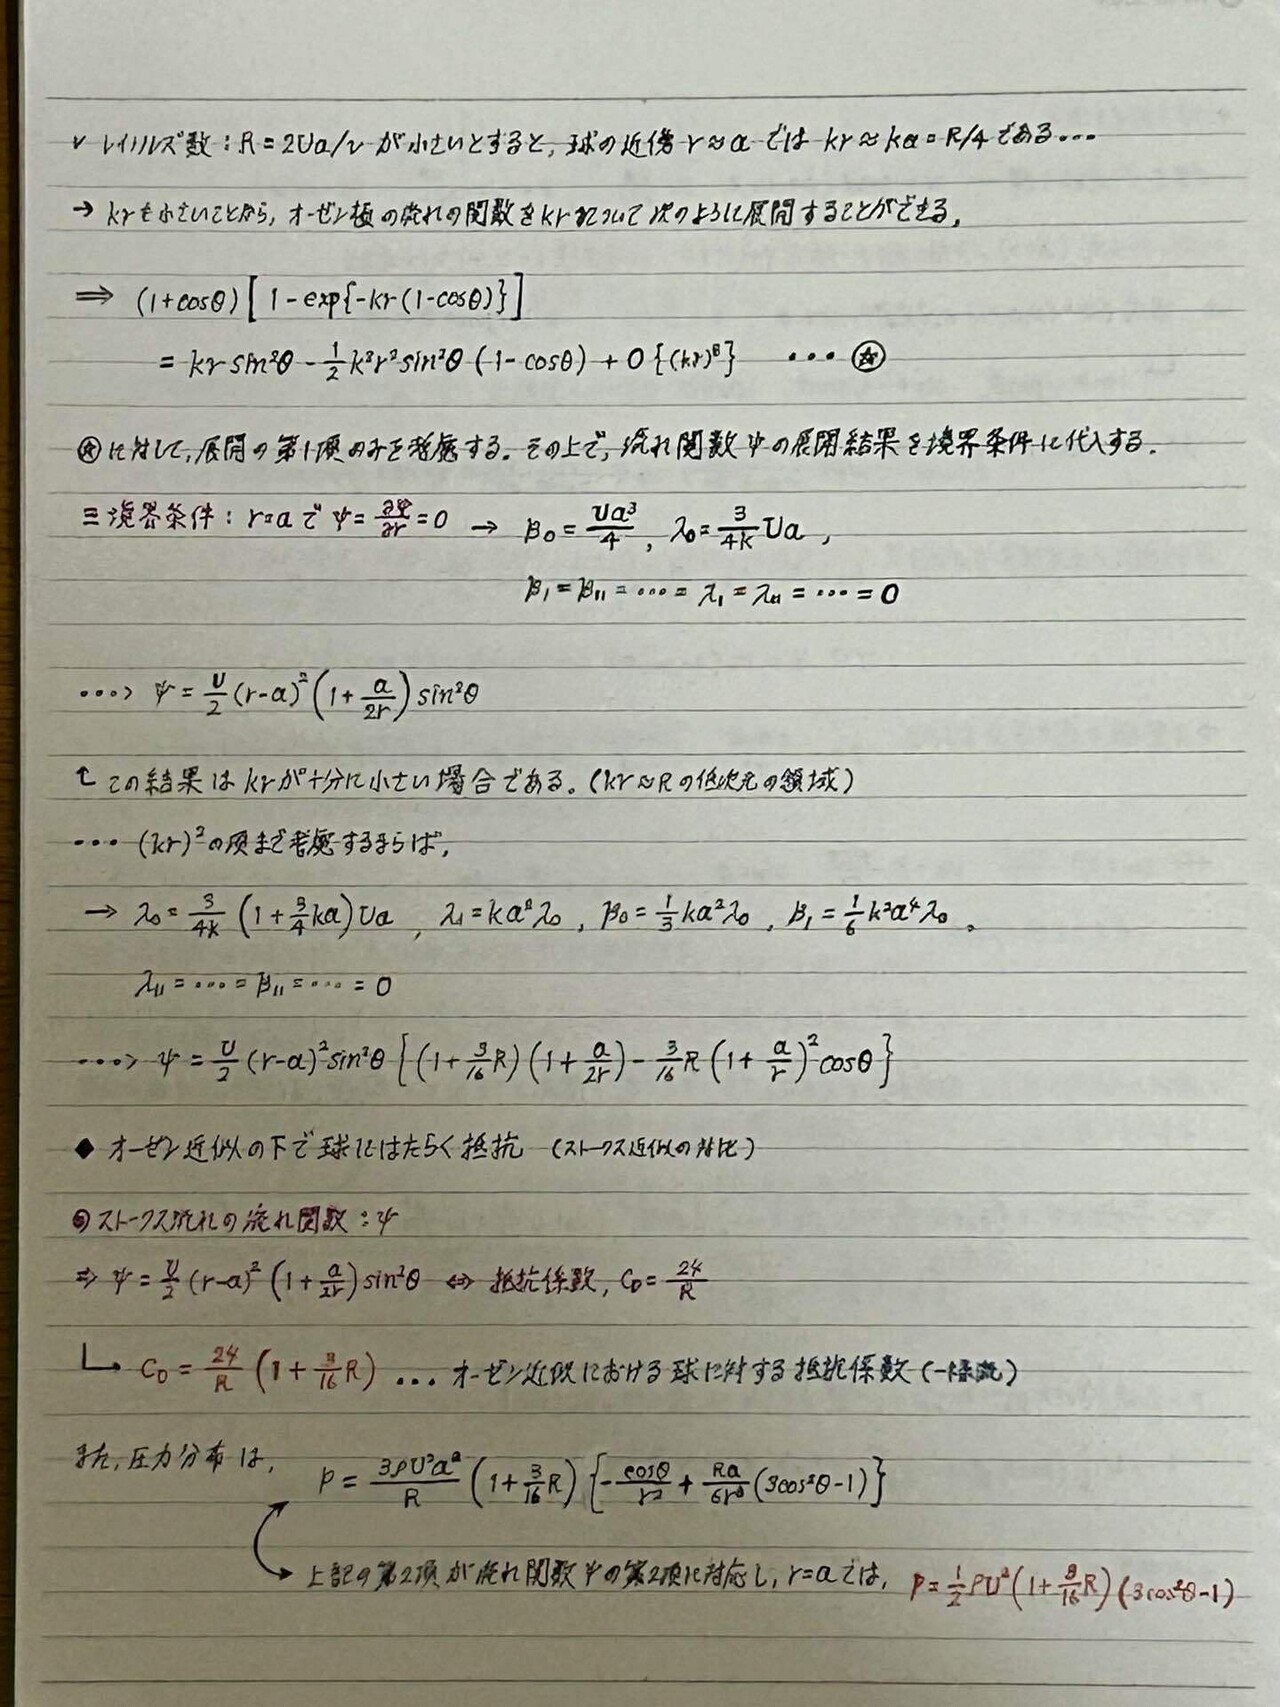 ✓ レイノルズ数：R = 2Ua/ν が小さいとすると，球の近傍 r≈a では kr≈ka = R/4 である…
→ krも小さいことから，オーゼン極の流れの関数をkrについて次のように展開することができる。
⇒ (1+cosθ)[1-exp{-kr(1-cosθ)}]
= kr sin²θ - 1/2 k²r² sin²θ (1-cosθ) + O{(kr)³} … ☆
☆に対して，展開の第1項のみを考慮する。その上で，流れ関数ψの展開結果を境界条件に代入する．
≡ 境界条件：r=a で ψ = ∂ψ/∂r = 0 → β₀ = Ua³/4 , λ₀ = 3/4k Ua ,
β₁ = β₁₁ = … = λ₁ = λ₁₁ = … = 0
…> ψ = U/2 (r-a)² (1 + a/2r) sin²θ
↑ この結果は krが十分に小さい場合である。(kr≈Rの低次元の領域)
… (kr)²の項まで考慮するならば，
→ λ₀ = 3/4k (1 + 3/4 ka) Ua , λ₁ = ka²λ₀ , β₀ = 1/3 ka²λ₀ , β₁ = 1/6 k²a⁴λ₀ 。
λ₁₁ = … = β₁₁ = … = 0
…> ψ = U/2 (r-a)² sin²θ {(1 + 3/16 R)(1 + a/2r) - 3/16 R (1 + a/r)² cosθ}
◆ オーゼン近似の下で球にはたらく抵抗 (ストークス近似の対比)
◎ ストークス流れの流れ関数：ψ
⇒ ψ = U/2 (r-a)² (1 + a/2r) sin²θ ⇔ 抵抗係数, C_D = 24/R
↳ C_D = 24/R (1 + 3/16 R) … オーゼン近似における球に対する抵抗係数 (一様流)
また，圧力分布は，
p = 3ρU²a²/R (1 + 3/16 R) {-cosθ/r² + Ra/6r³ (3cos²θ-1)}
上記の第2項が流れ関数ψの第2項に対応し，r=aでは， p = 1/2 ρU² (1 + 3/16 R)(3cos²θ-1)